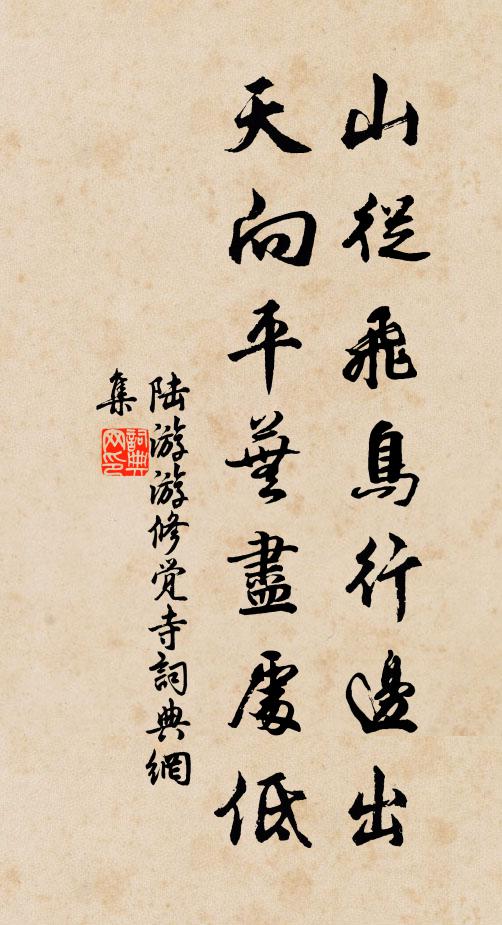 山從飛鳥行邊出
天向平蕪盡處低
陆游游修觉寺詞典網
集
詞典
网印